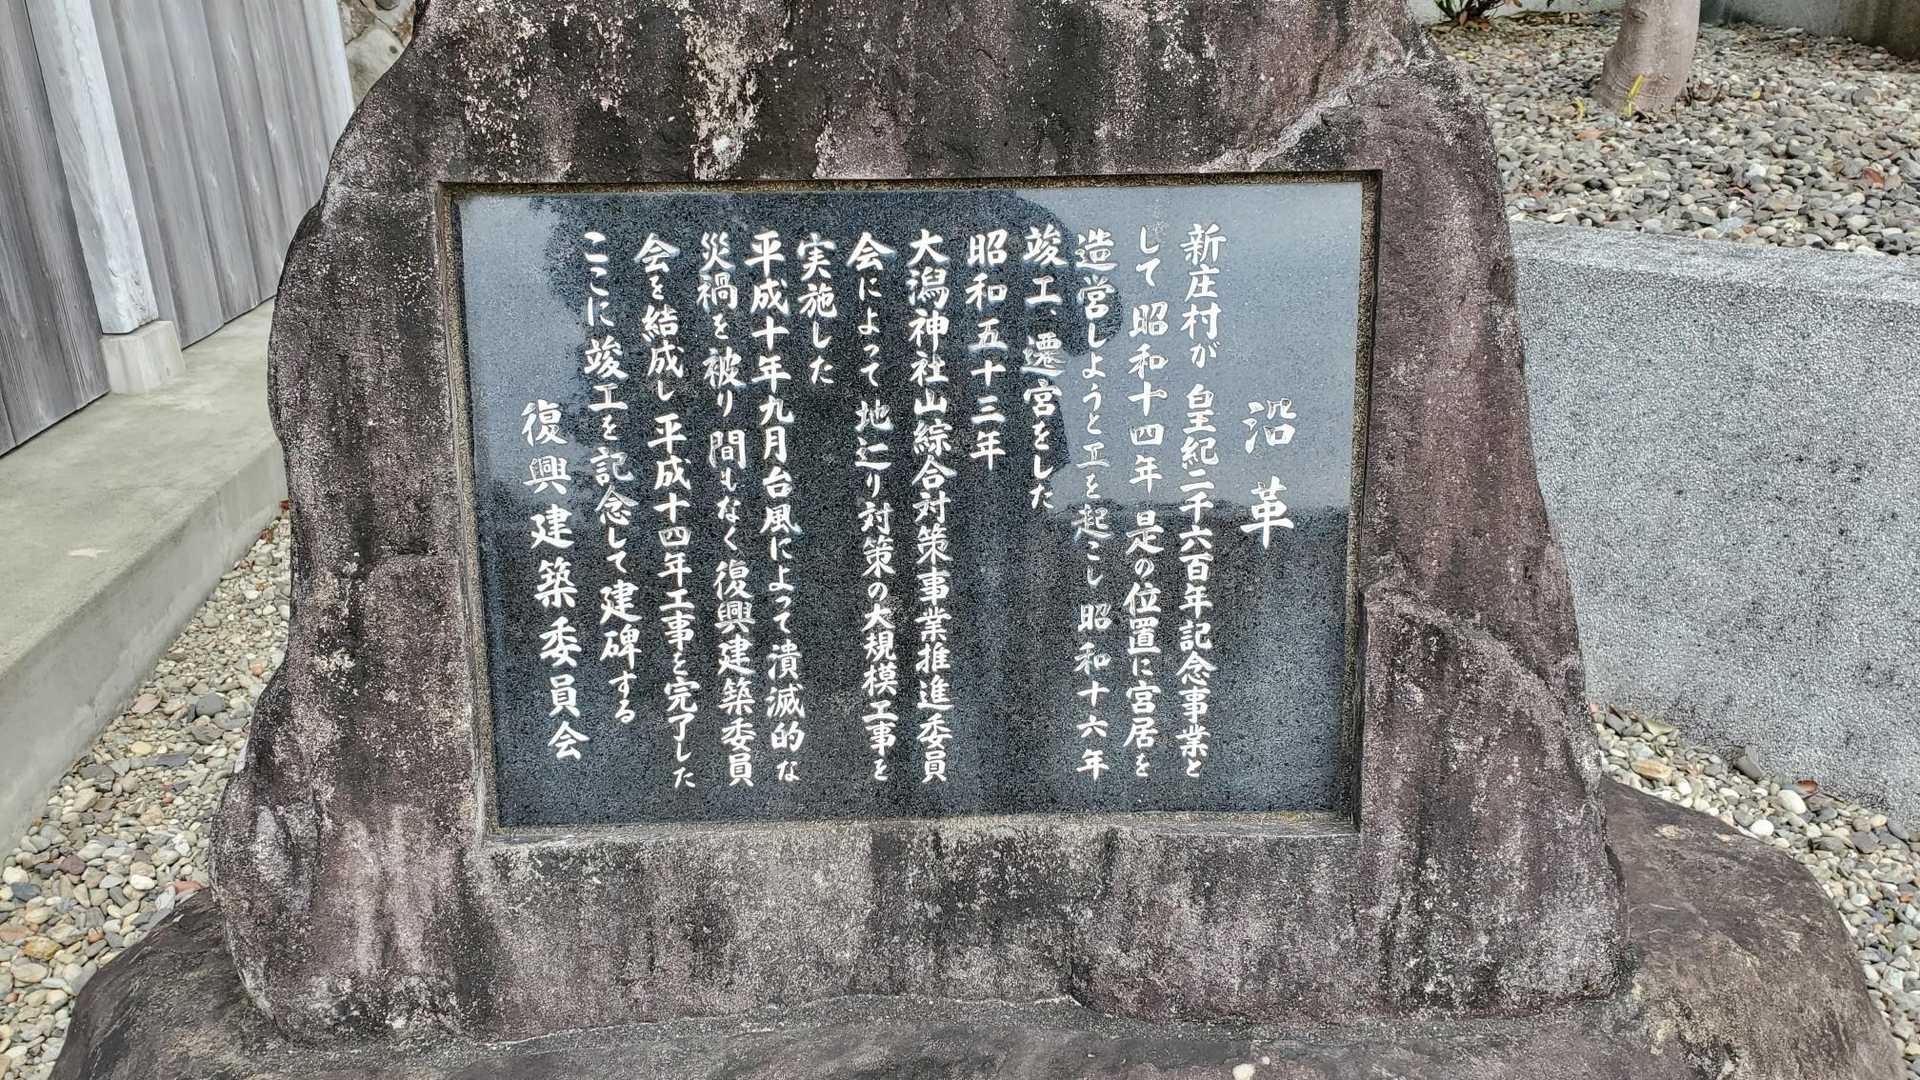 沿革
新庄村が 皇紀二千六百年記念事業と
して 昭和十四年 是の位置に宮居を
造営しようと工を起こし 昭和十六年
竣工、遷宮をした
昭和五十三年
大潟神社山綜合対策事業推進委員
会によって 地辷り対策の大規模工事を
実施した
平成十年九月台風によって潰滅的な
災禍を被り間もなく復興建築委員
会を結成し 平成十四年工事を完了した
ここに竣工を記念して建碑する
復興建築委員会